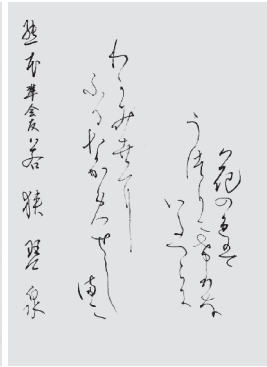 花の色は
うつりにけりな
いたつらに
わかみ世に
ふるなかめせし
まに
熊本準会友 若狭 泉